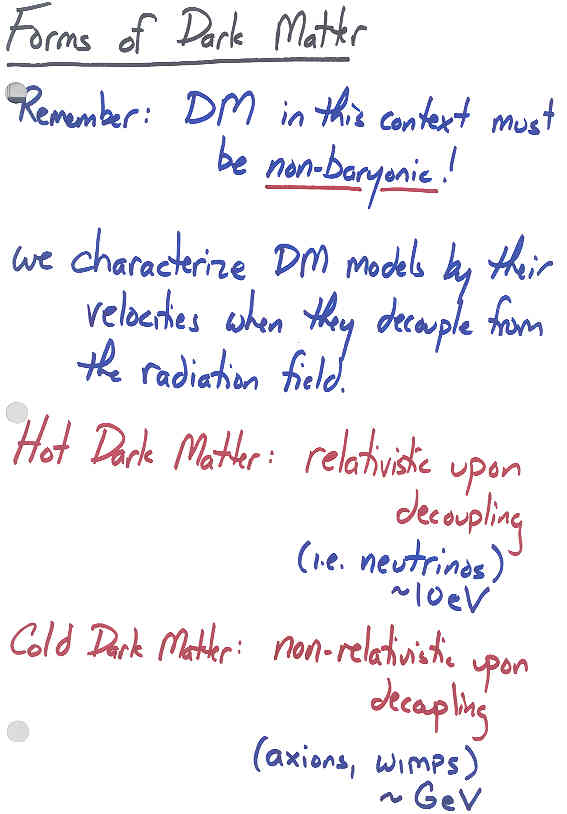 Forms of Dark Matter
Remember: DM in this context must
be non-baryonic!
we characterize DM models by their
velocities when they decouple from
the radiation field.
Hot Dark Matter: relativistic upon
decoupling
(i.e. neutrinos)
~10eV
Cold Dark Matter: non-relativistic upon
decoupling
(axions, WIMPS)
~ GeV